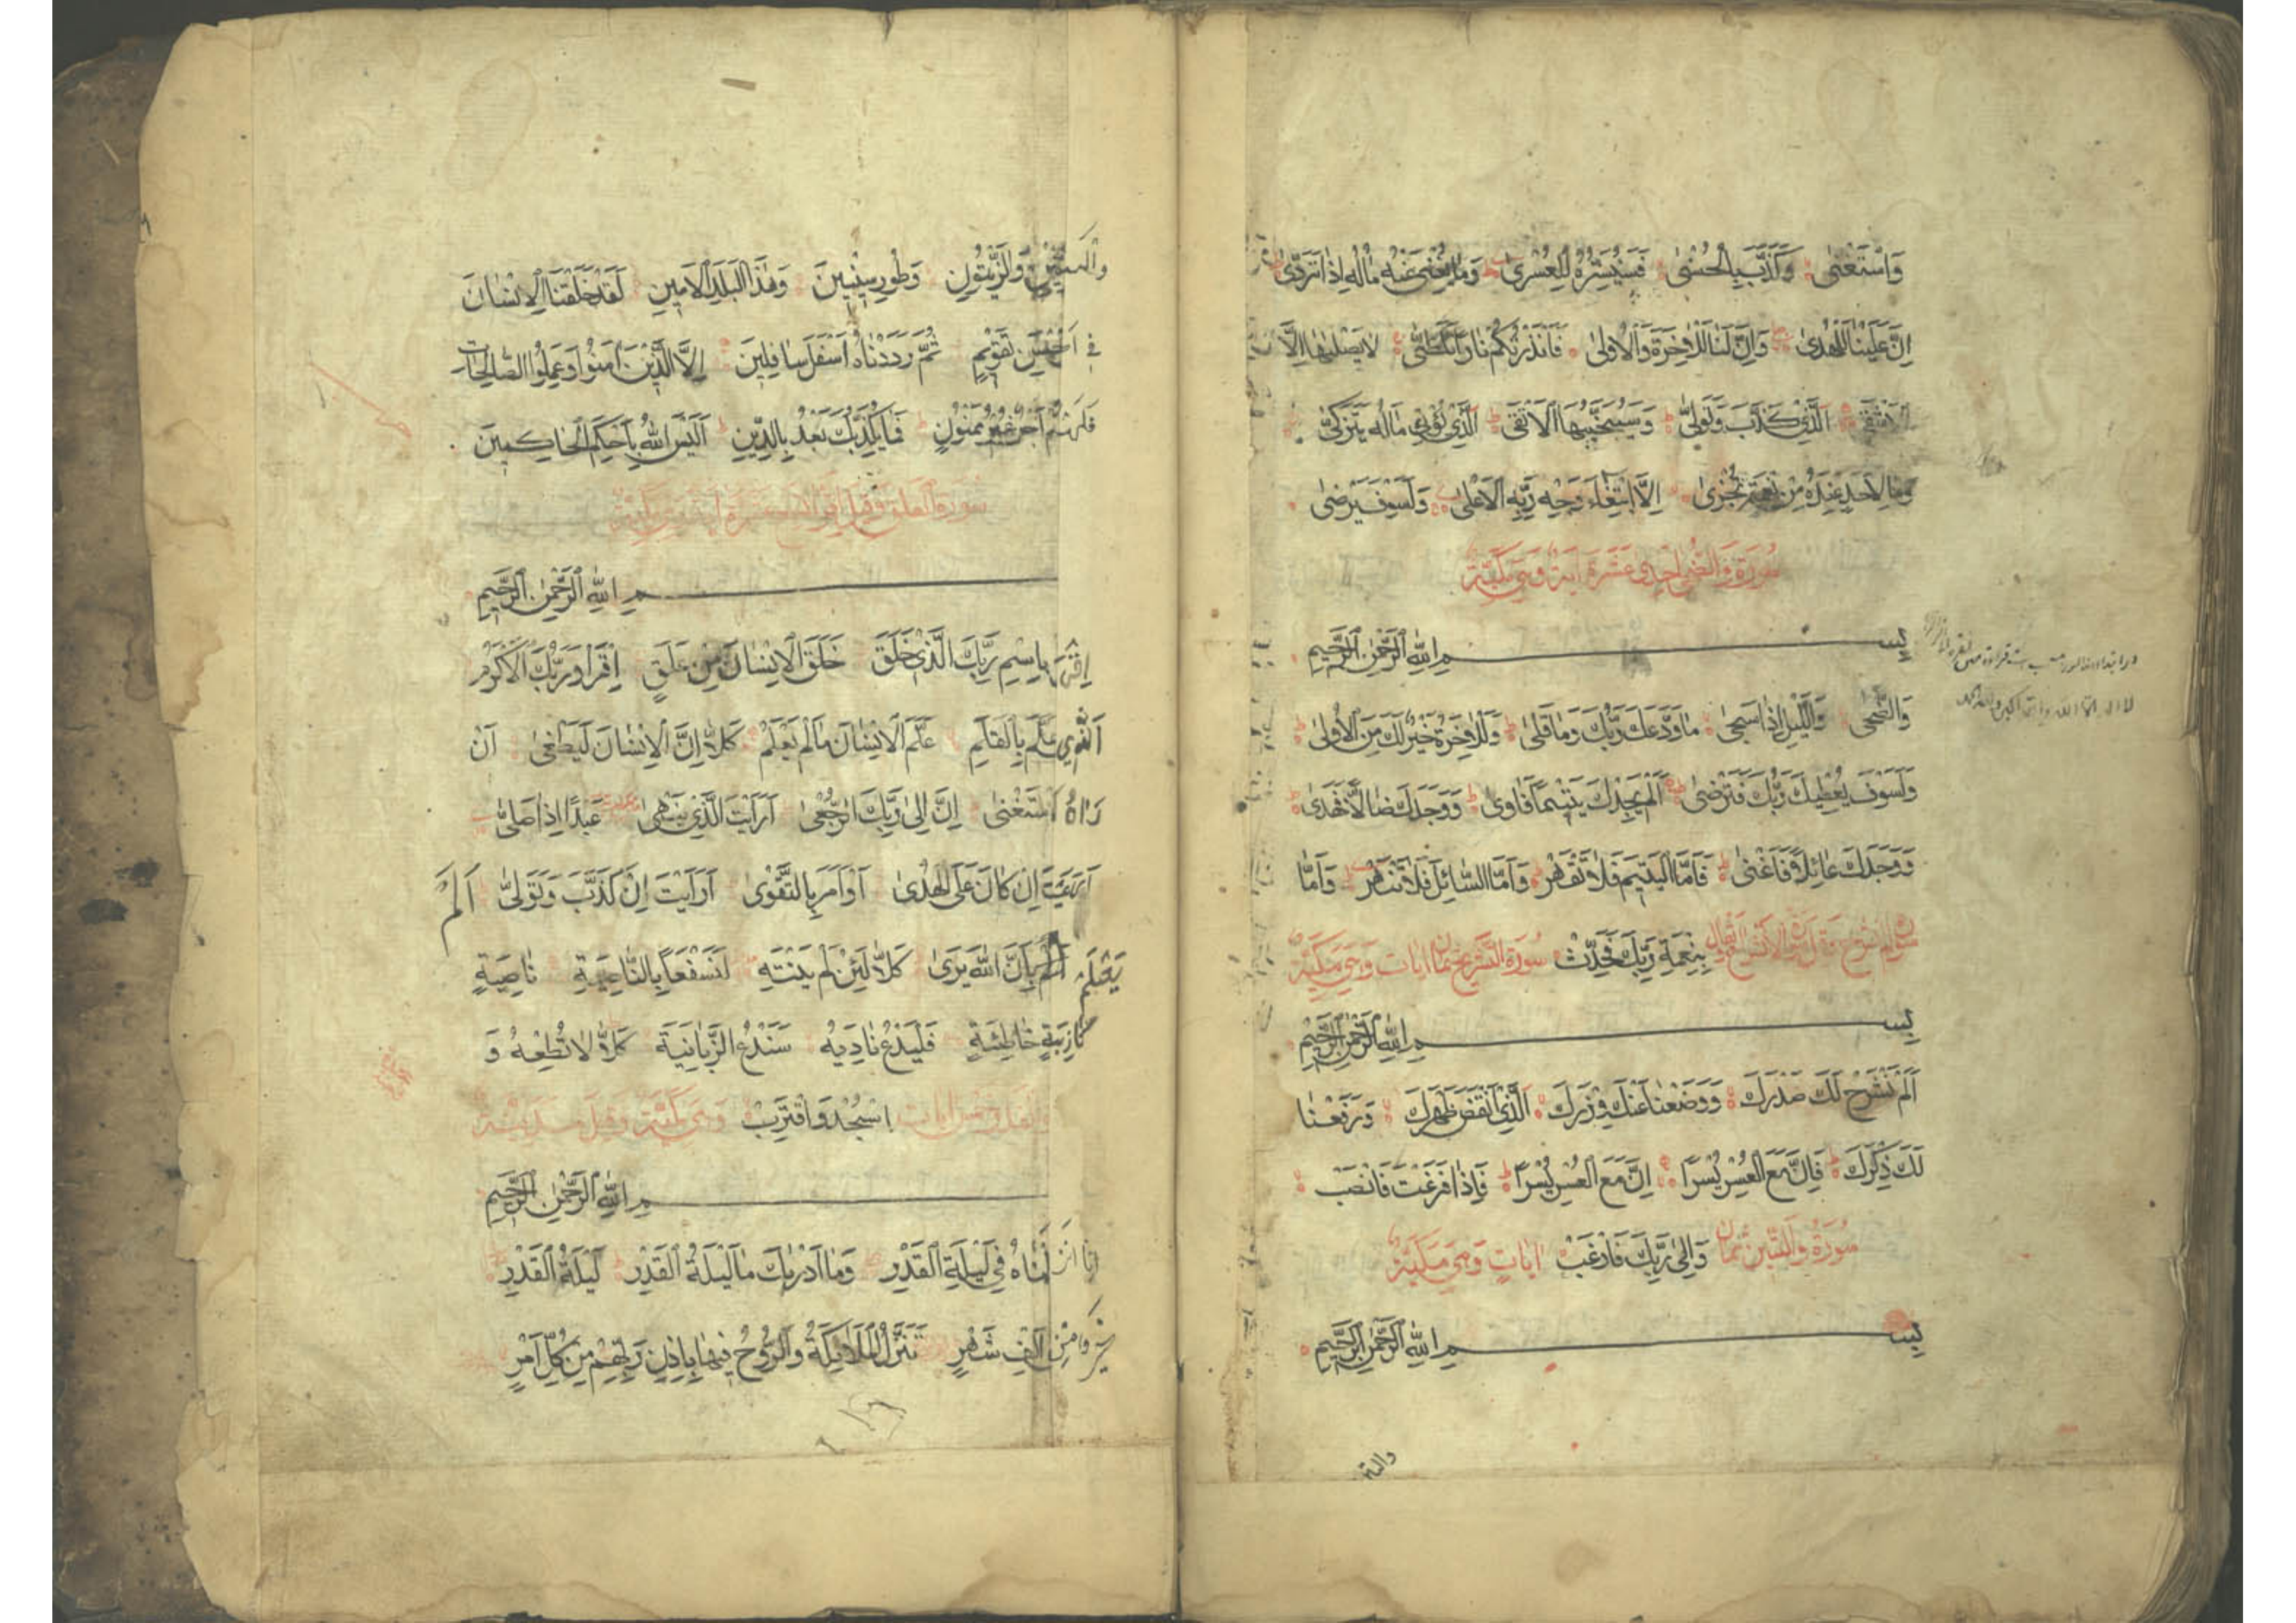 وَاسْتَغْنٰى وَكَذَّبَ بِالْحُسْنٰى فَسَنُيَسِّرُهُ لِلْعُسْرٰى وَمَا يُغْنِى عَنْهُ مَالُهُ اِذَا تَرَدّٰى
اِنَّ عَلَيْنَا لَلْهُدٰى وَاِنَّ لَنَا لَلْاٰخِرَةَ وَالْاُولٰى فَاَنْذَرْتُكُمْ نَارًا تَلَظّٰى لَا يَصْلٰيهَا اِلَّا
الْاَشْقَى الَّذِى كَذَّبَ وَتَوَلّٰى وَسَيُجَنَّبُهَا الْاَتْقَى الَّذِى يُؤْتِى مَالَهُ يَتَزَكّٰى
وَمَا لِاَحَدٍ عِنْدَهُ مِنْ نِعْمَةٍ تُجْزٰى اِلَّا ابْتِغَاءَ وَجْهِ رَبِّهِ الْاَعْلٰى وَلَسَوْفَ يَرْضٰى
سُورَةُ وَالضُّحٰى اِحْدٰى عَشْرَةَ اٰيَةً وَهِىَ مَكِّيَّةٌ
بِسْمِ اللّٰهِ الرَّحْمٰنِ الرَّحِيمِ
وَالضُّحٰى وَاللَّيْلِ اِذَا سَجٰى مَا وَدَّعَكَ رَبُّكَ وَمَا قَلٰى وَلَلْاٰخِرَةُ خَيْرٌ لَكَ مِنَ الْاُولٰى
وَلَسَوْفَ يُعْطِيكَ رَبُّكَ فَتَرْضٰى اَلَمْ يَجِدْكَ يَتِيمًا فَاٰوٰى وَوَجَدَكَ ضَالًّا فَهَدٰى
وَوَجَدَكَ عَائِلًا فَاَغْنٰى فَاَمَّا الْيَتِيمَ فَلَا تَقْهَرْ وَاَمَّا السَّائِلَ فَلَا تَنْهَرْ وَاَمَّا
بِنِعْمَةِ رَبِّكَ فَحَدِّثْ سُورَةُ التَّشْرِيحِ ثَمَانُ اٰيَات وَهِىَ مَكِّيَّةٌ
بِسْمِ اللّٰهِ الرَّحْمٰنِ الرَّحِيمِ
اَلَمْ نَشْرَحْ لَكَ صَدْرَكَ وَوَضَعْنَا عَنْكَ وِزْرَكَ الَّذِى اَنْقَضَ ظَهْرَكَ وَرَفَعْنَا
لَكَ ذِكْرَكَ فَاِنَّ مَعَ الْعُسْرِ يُسْرًا اِنَّ مَعَ الْعُسْرِ يُسْرًا فَاِذَا فَرَغْتَ فَانْصَبْ
سُورَةُ وَالتِّينِ ثَمَانُ وَاِلٰى رَبِّكَ فَارْغَبْ اٰيَاتٍ وَهِىَ مَكِّيَّةٌ
بِسْمِ اللّٰهِ الرَّحْمٰنِ الرَّحِيمِ
والتين
وَالتِّينِ وَالزَّيْتُونِ وَطُورِ سِينِينَ وَهٰذَا الْبَلَدِ الْاَمِينِ لَقَدْ خَلَقْنَا الْاِنْسَانَ
فِى اَحْسَنِ تَقْوِيمٍ ثُمَّ رَدَدْنَاهُ اَسْفَلَ سَافِلِينَ اِلَّا الَّذِينَ اٰمَنُوا وَعَمِلُوا الصَّالِحَاتِ
فَلَهُمْ اَجْرٌ غَيْرُ مَمْنُونٍ فَمَا يُكَذِّبُكَ بَعْدُ بِالدِّينِ اَلَيْسَ اللّٰهُ بِاَحْكَمِ الْحَاكِمِينَ
سُورَةُ الْعَلَقِ
مِ اللّٰهِ الرَّحْمٰنِ الرَّحِيمِ
اِقْرَا بِاسْمِ رَبِّكَ الَّذِى خَلَقَ خَلَقَ الْاِنْسَانَ مِنْ عَلَقٍ اِقْرَأْ وَرَبُّكَ الْاَكْرَمُ
الَّذِى عَلَّمَ بِالْقَلَمِ عَلَّمَ الْاِنْسَانَ مَا لَمْ يَعْلَمْ كَلَّا اِنَّ الْاِنْسَانَ لَيَطْغٰى اَنْ
رَاٰهُ اسْتَغْنٰى اِنَّ اِلٰى رَبِّكَ الرُّجْعٰى اَرَاَيْتَ الَّذِى يَنْهٰى عَبْدًا اِذَا صَلّٰى
اَرَاَيْتَ اِنْ كَانَ عَلَى الْهُدٰى اَوْ اَمَرَ بِالتَّقْوٰى اَرَاَيْتَ اِنْ كَذَّبَ وَتَوَلّٰى اَلَمْ
يَعْلَمْ بِاَنَّ اللّٰهَ يَرٰى كَلَّا لَئِنْ لَمْ يَنْتَهِ لَنَسْفَعًا بِالنَّاصِيَةِ نَاصِيَةٍ
كَاذِبَةٍ خَاطِئَةٍ فَلْيَدْعُ نَادِيَهُ سَنَدْعُ الزَّبَانِيَةَ كَلَّا لَا تُطِعْهُ وَ
اسْجُدْ وَاقْتَرِبْ وَهِىَ مَكِّيَّةٌ وَقِيلَ مَدَنِيَّةٌ
مِ اللّٰهِ الرَّحْمٰنِ الرَّحِيمِ
اِنَّا اَنْزَلْنَاهُ فِى لَيْلَةِ الْقَدْرِ وَمَا اَدْرٰيكَ مَا لَيْلَةُ الْقَدْرِ لَيْلَةُ الْقَدْرِ
خَيْرٌ مِنْ اَلْفِ شَهْرٍ تَنَزَّلُ الْمَلَائِكَةُ وَالرُّوحُ فِيهَا بِاِذْنِ رَبِّهِمْ مِنْ كُلِّ اَمْرٍ